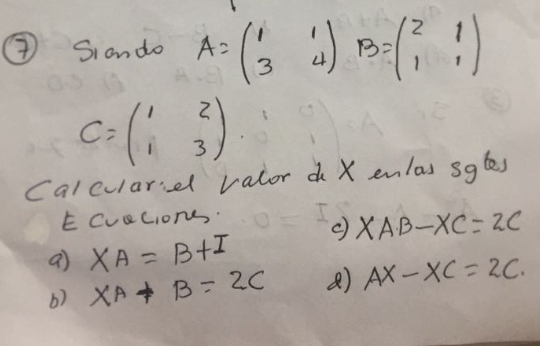 ⑦ Siendo A = (1 1
3 4) B = (2 1
1 1)
C = (1 2
1 3).
Calcular el valor de X en las sgtes
Ecuaciones.
a) XA = B+I
b) XA + B = 2C
c) XA.B-XC = 2C
d) AX-XC = 2C.